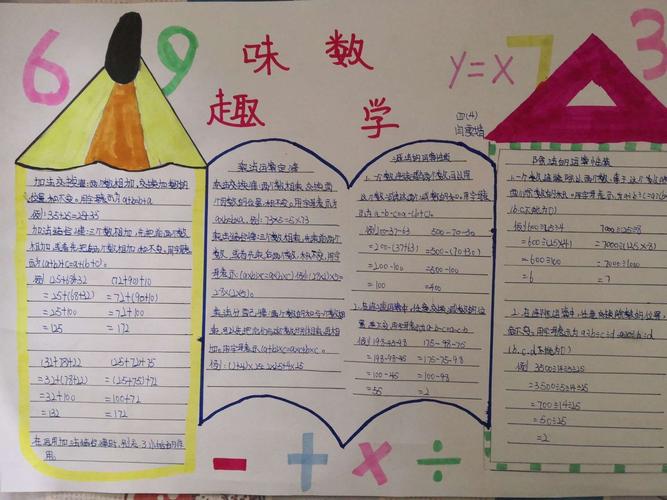 6 9 味 数 y=x 7 3
趣 学
四(4)
加法交换律:两个数相加,交换加数的
位置,和不变。用字母表示为a+b=b+a
例:35+25=25+35
加法结合律:三个数相加,先把前两个数
相加,或者先把后两个数相加,和不变。用字母表
示为(a+b)+c=a+(b+c)。
例 (25+68)+32 (72+90)+10
=25+(68+32) =72+(90+10)
=25+100 =72+100
=125 =172
(32+78)+22 (25+72)+75
=32+(78+22) =(25+75)+72
=32+100 =100+72
=132 =172
在运用加法结合律时,别忘了小括号的作
用。
乘法运算定律
乘法交换律:两个数相乘,交换两
个因数的位置,积不变。用字母表示为
a×b=b×a。例:73×5=5×73
乘法结合律:三个数相乘,先乘前两个
数,或者先乘后两个数,积不变。用字
母表示:(a×b)×c=a×(b×c)
28×(2×5)。
乘法分配律:两个数的和与一个数相
乘,可以先把它们与这个数分别相乘,再相
加。用字母表示:(a+b)×c=a×c+b×c。
减法的运算性质
1.一个数连续减去两个数,可以用
这个数减去这两个减数的和。用字母表
示为a-b-c=a-(b+c)。
例200-37-63 500-70-30
=200-(37+63) =500-(70+30)
=200-100 =500-100
=100 =400
2.在连减运算中,任意交换减数的位
置,差不变。用字母表示为a-b-c=a-c-b
例198-45-98 175-98-75
=198-98-45 =175-75-98
=100-45 =100-98
=55 =2
除法的运算性质
1.一个数连续除以两个数,等于这个数除以
(b.c不能为0)
例600÷25÷4 7000÷125÷8
=600÷(25×4) =7000÷(125×8)
=600÷100 =7000÷1000
=6 =7
2.在连除运算中,任意交换除数的位置,
商不变。用字母表示为a÷b÷c÷d=a÷c÷b÷d
(b.c.d不能为0)
例 3500÷14÷5÷25
=3500÷5÷14÷25
=700÷14÷25
=50÷25
=2
- + × ÷